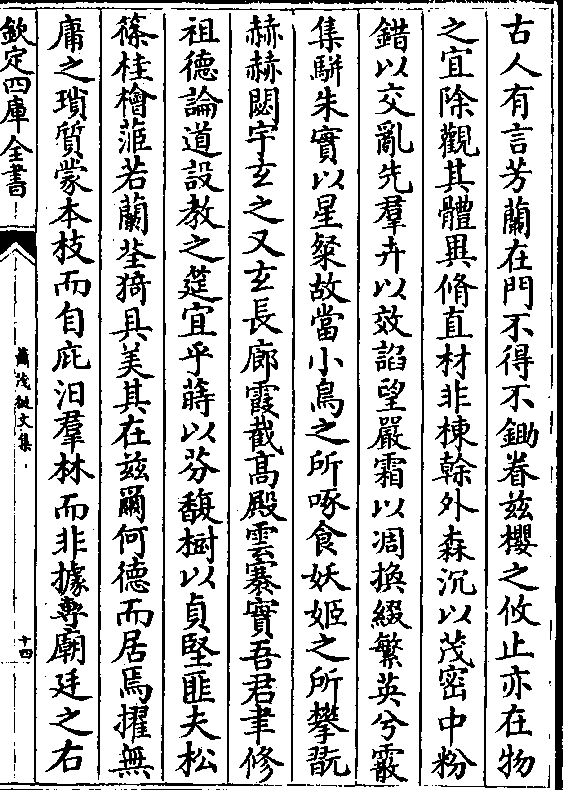 古人有言芳蘭在門不得不鋤眷兹櫻之攸止亦在物
之宜除觀其體異脩直材非棟榦外森沉以茂密中粉
錯以交亂先羣卉以效諂望嚴霜以凋換綴繁英兮霰
集駢朱實以星粲故當小鳥之所啄食妖姬之所攀翫
赫赫閟宇玄之又玄長廊霞截髙殿雲褰實吾君聿修
祖德論道設教之筵宜乎蒔以芬馥樹以貞堅匪夫松
篠桂檜茝若蘭荃猗具美其在兹爾何德而居焉擢無
庸之瑣質蒙本枝而自庇汨羣林而非據專廟廷之右
欽定四庫全書
蕭茂挺文集
十四